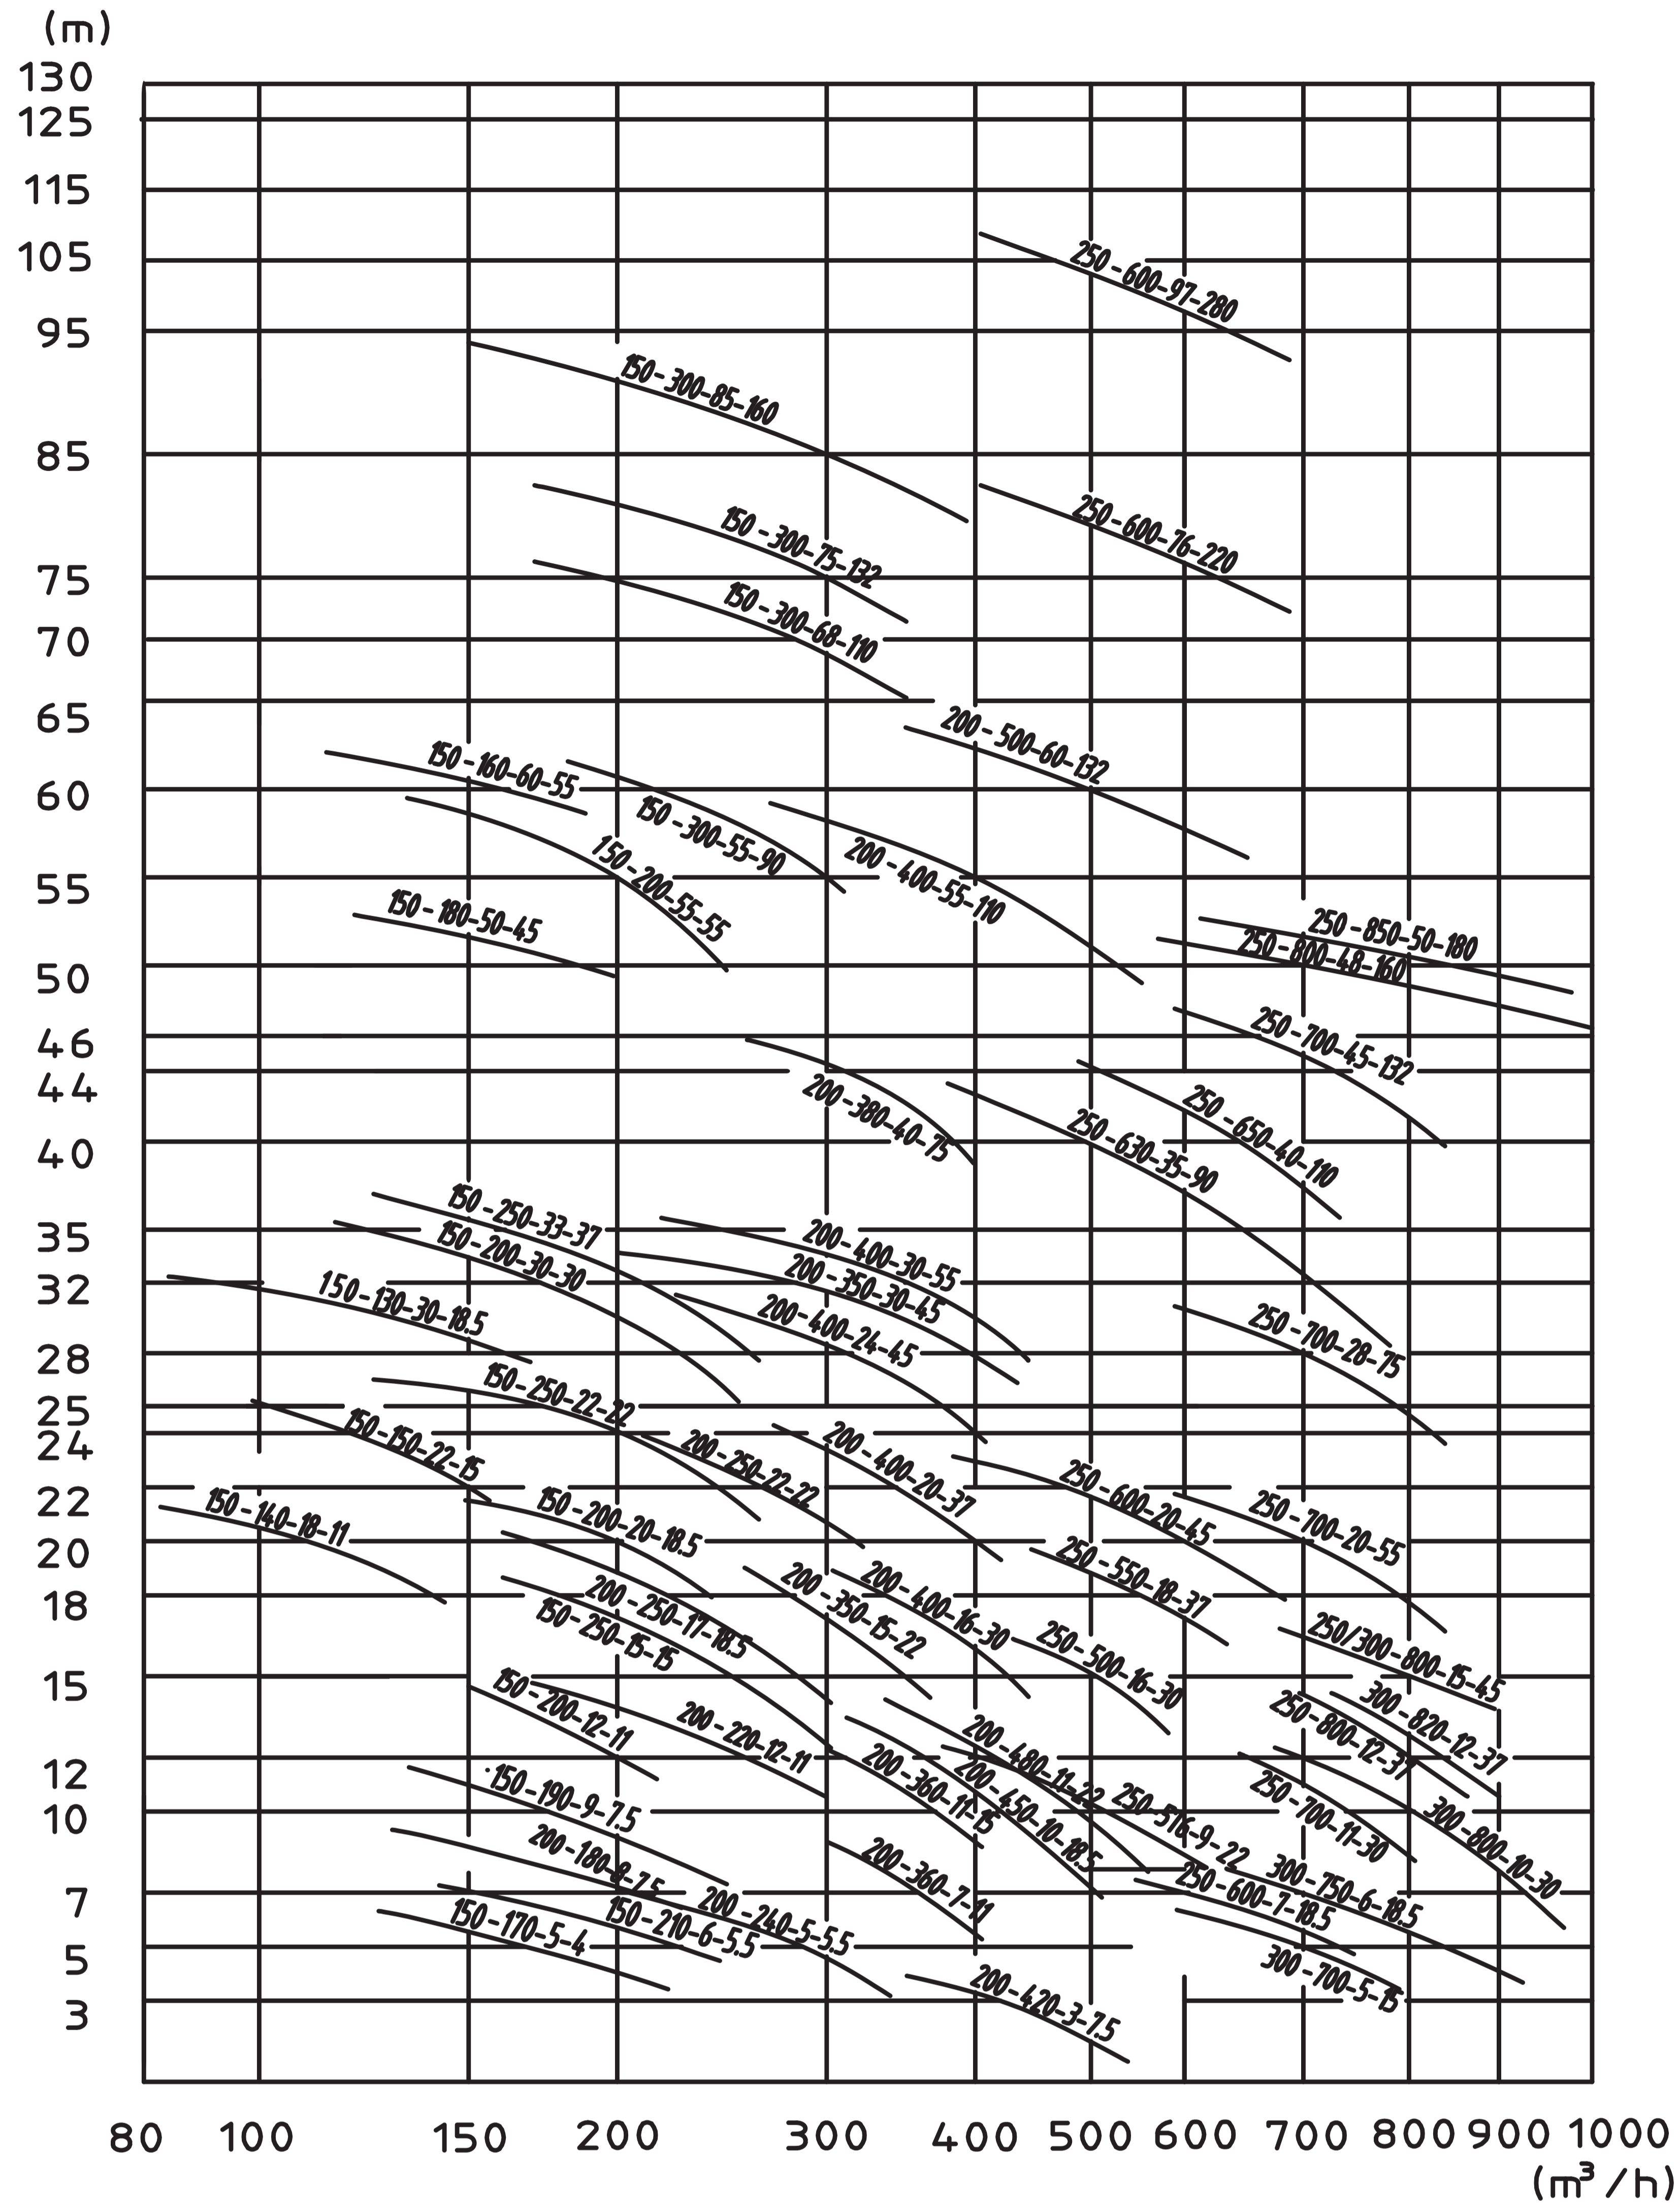 (m)
130
125
115
105
95
85
75
70
65
60
55
50
46
44
40
35
32
28
25
24
22
20
18
15
12
10
7
5
3
250-600-97-280
150-300-85-160
250-600-76-220
150-300-75-132
150-300-68-110
200-500-60-132
150-160-60-55
150-300-55-90
200-400-55-110
150-200-55-55
150-180-50-45
250-850-50-180
250-800-48-160
250-700-45-132
200-380-40-75
250-650-40-110
250-630-35-90
150-250-33-37
150-200-30-30
200-400-30-55
200-350-30-45
150-130-30-18.5
200-400-24-45
250-700-28-75
150-250-22-22
150-150-22-15
200-250-22-22
200-400-20-37
250-600-20-45
150-140-18-11
150-200-20-18.5
250-700-20-55
250-550-18-37
200-250-17-18.5
150-250-15-15
200-350-15-22
200-400-16-30
250-500-16-30
250/300-800-15-45
150-200-12-11
200-220-12-11
300-820-12-37
250-800-12-37
200-480-11-22
200-360-11-15
200-450-10-18.5
150-190-9-7.5
250-516-9-22
250-700-11-30
300-800-10-30
200-180-8-7.5
200-360-7-11
300-750-6-18.5
250-600-7-18.5
200-240-5-5.5
150-210-6-5.5
150-170-5-4
300-700-5-15
200-420-3-7.5
80 100 150 200 300 400 500 600 700 800 900 1000
(m³/h)